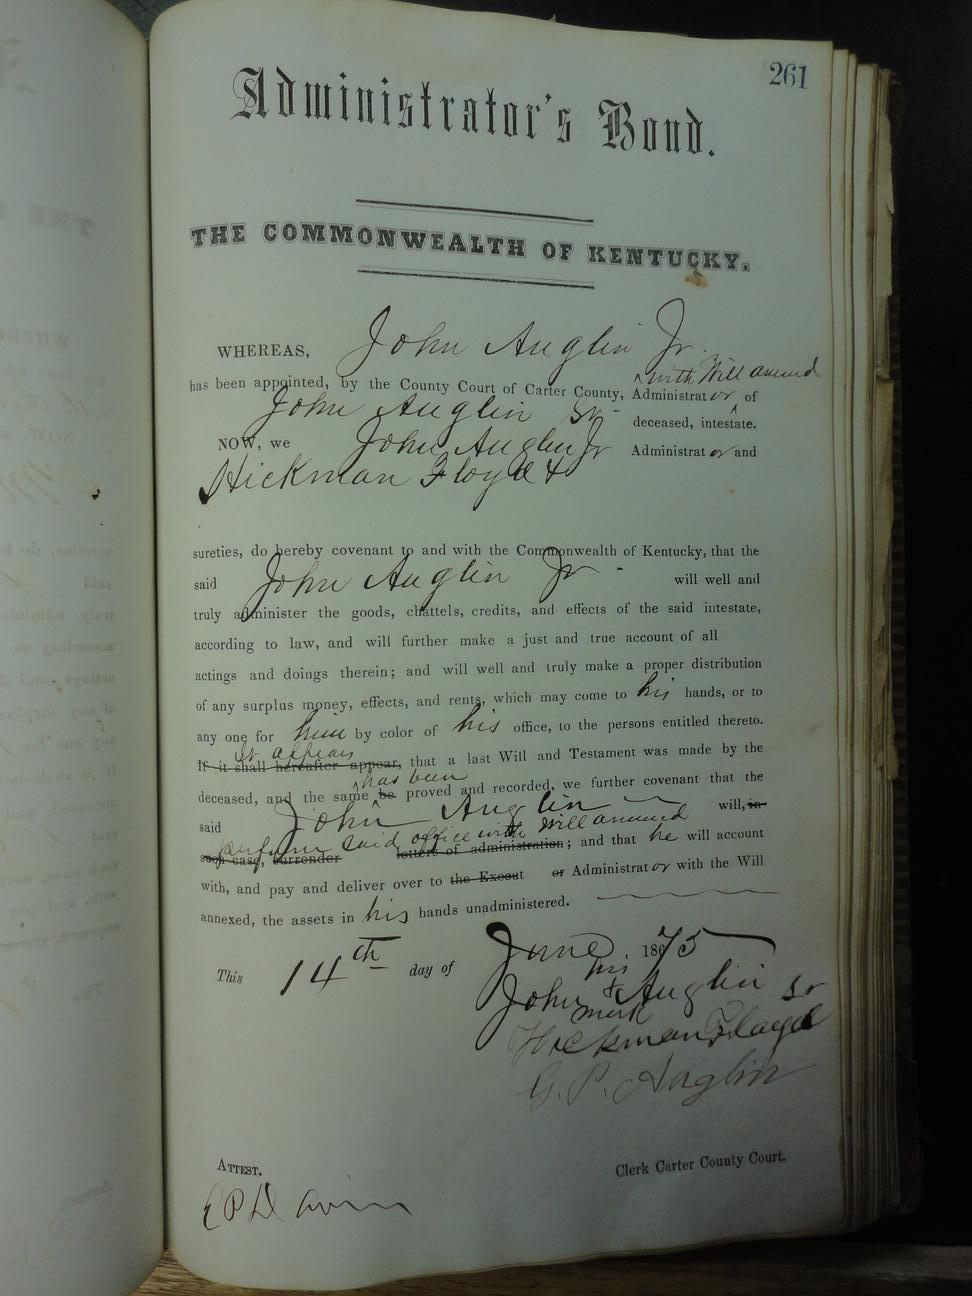 261
Administrator's Bond.
THE COMMONWEALTH OF KENTUCKY.
WHEREAS, John Anglin Jr
with Will annexd
has been appointed, by the County Court of Carter County, Administrator of
John Anglin Sr deceased, intestate.
NOW, we John Anglin Jr Administrator and
Hickman Floyd &
sureties, do hereby covenant to and with the Commonwealth of Kentucky, that the
said John Anglin Jr will well and
truly administer the goods, chattels, credits, and effects of the said intestate,
according to law, and will further make a just and true account of all
actings and doings therein; and will well and truly make a proper distribution
of any surplus money, effects, and rents, which may come to his hands, or to
any one for him by color of his office, to the persons entitled thereto.
It appears
If it shall hereafter appear, that a last Will and Testament was made by the
has been
deceased, and the same be proved and recorded, we further covenant that the
said John Anglin will, in
perform said office with Will annexd
such case, surrender letters of administration; and that he will account
with, and pay and deliver over to the Execut or Administrator with the Will
annexed, the assets in his hands unadministered.
This 14th day of June, 1875
his
John x Anglin Sr
mark
Hickman Floyd
G. P. Anglin
ATTEST,
Clerk Carter County Court.